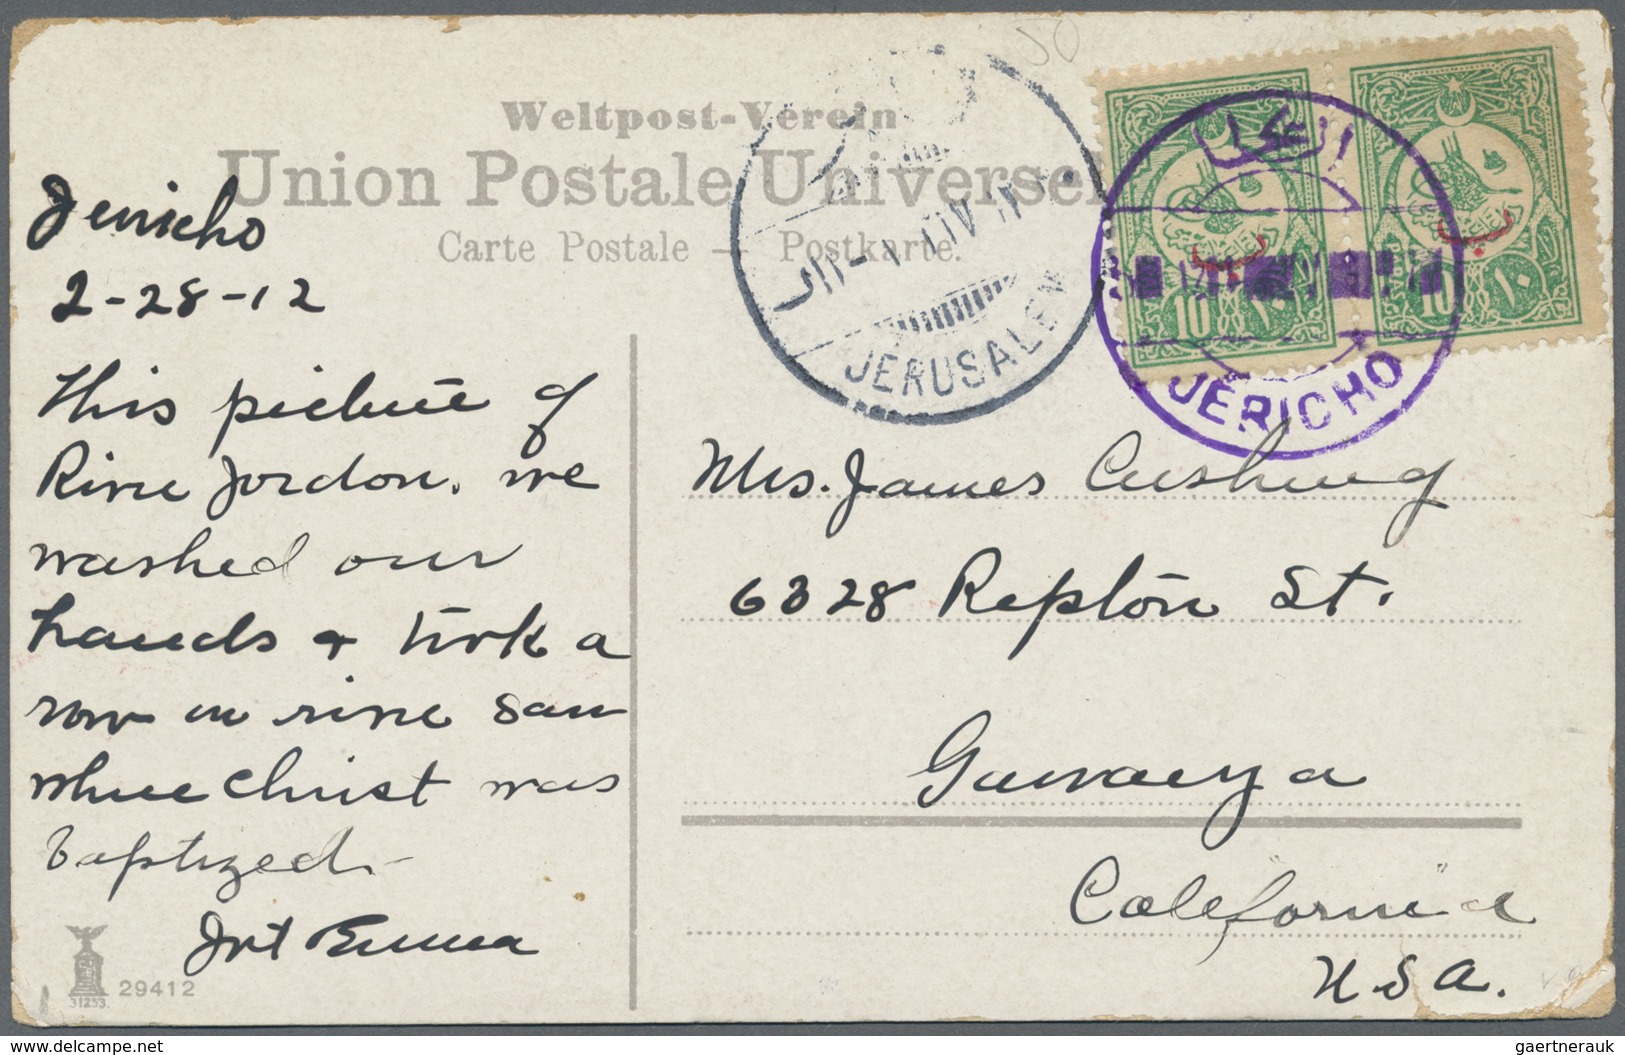 Weltpost-Verein
Union Postale Universel
Carte Postale — Postkarte.
Jericho
2-28-12
This picture of
River Jordon. we
washed our
hands & took a
row in river Sam
where Christ was
baptized
Emma
JERUSALEM
JERICHO
10 ١٠
10 ١٠
ب
ب
Mrs. James Cushing
6328 Repton St.
California
USA.
31253.
29412
www.delcampe.net
gaertnerauk